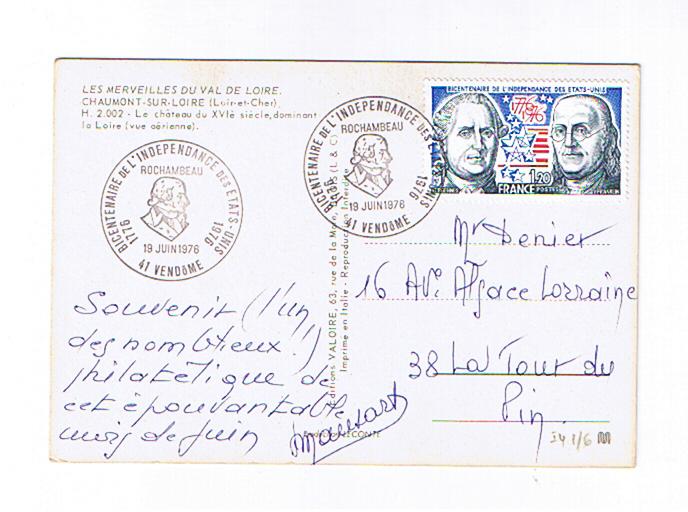 LES MERVEILLES DU VAL DE LOIRE.
CHAUMONT-SUR-LOIRE (Loir-et-Cher).
H. 2.002 - Le château du XVIè siècle, dominant
la Loire (vue aérienne).
BICENTENAIRE DE L'INDEPENDANCE DES ETATS-UNIS
ROCHAMBEAU
1776
1976
19 JUIN 1976
41 VENDOME
BICENTENAIRE DE L'INDEPENDANCE DES ETATS-UNIS
ROCHAMBEAU
1776
1976
19 JUIN 1976
41 VENDOME
BICENTENAIRE DE L'INDEPENDANCE DES ETATS-UNIS
1776
1976
1,20
FRANCE POSTES
Editions VALOIRE, 63, rue de la Mare,
Imprimé en Italie - Reproduction Interdite
Souvenir (l'un
des nombreux !)
philatélique de
cet épouvantable
mois de juin
Mr Denier
16 Ave Alsace Lorraine
38 La Tour du
Pin